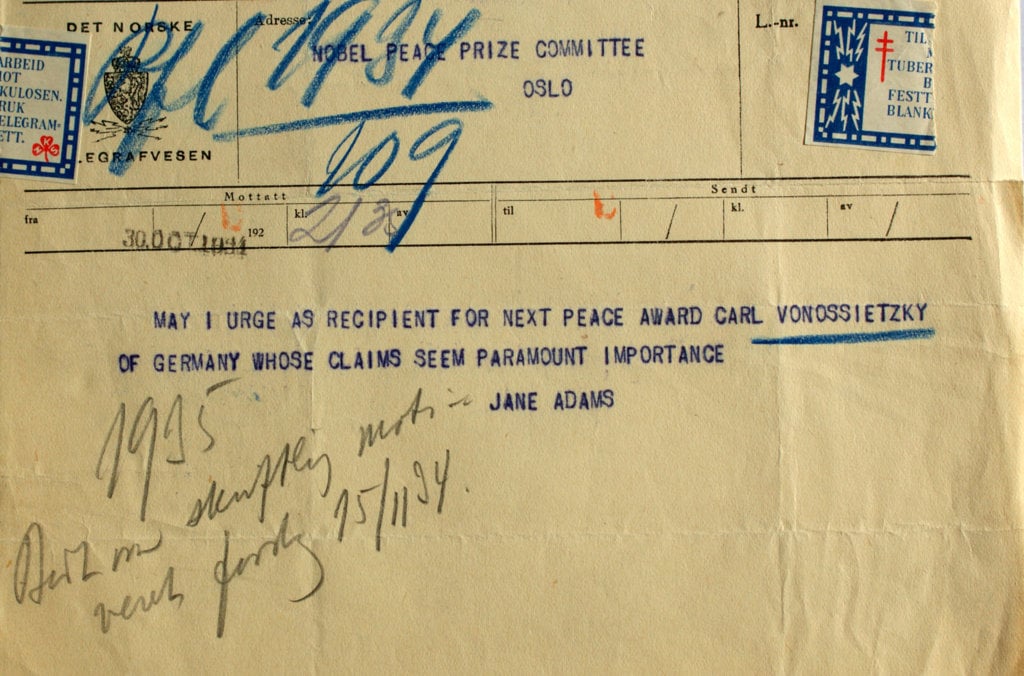 DET NORSKE
Adresse:
L.-nr.
1934
NOBEL PEACE PRIZE COMMITTEE
OSLO
ARBEID
MOT
KULOSEN.
RUK
ELEGRAM-
ETT.
TIL
TUBER
B
FESTT
BLANK
EGRAFVESEN
109
Mottatt
Sendt
fra
kl.
av
til
kl.
av
30.OCT 1934
192
MAY I URGE AS RECIPIENT FOR NEXT PEACE AWARD CARL VONOSSIETZKY
OF GERMANY WHOSE CLAIMS SEEM PARAMOUNT IMPORTANCE
JANE ADAMS
1935
15/11 34.